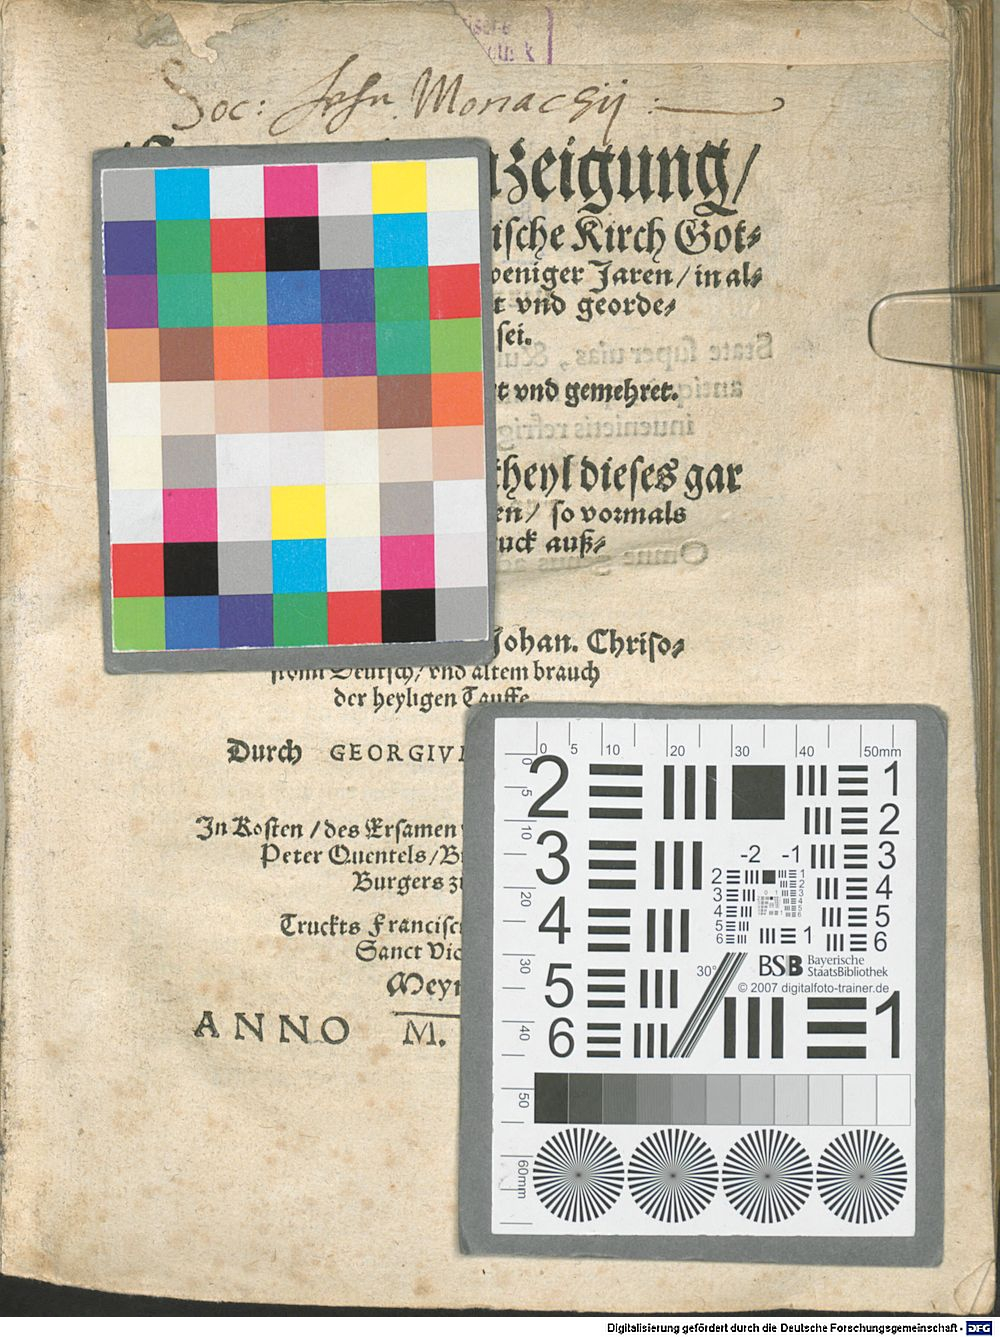 Soc: Jesu Monachij:
nzeigung/
ische Kirch Got⸗
weniger Jaren / in al⸗
t vnd georde⸗
sei.
t vnd gemehret.
theyl dieses gar
en / so vormals
uck auß⸗
Johan. Chriso⸗
stomi Deutsch / vnd altem brauch
der heyligen Tauffe
Durch GEORGIVM
In Kosten / des Ersamen
Peter Quentels / B
Burgers z
Truckts Francisc
Sanct Vic
Meyn
ANNO M.
0 5 10 20 30 40 50mm
0 5 10 20 30 40 50 60mm
2 3 4 5 6
1 2 3 4 5 6
-2 -1
2 3 4 5 6
1
30°
BSB Bayerische
StaatsBibliothek
© 2007 digitalfoto-trainer.de
1
Digitalisierung gefördert durch die Deutsche Forschungsgemeinschaft - DFG